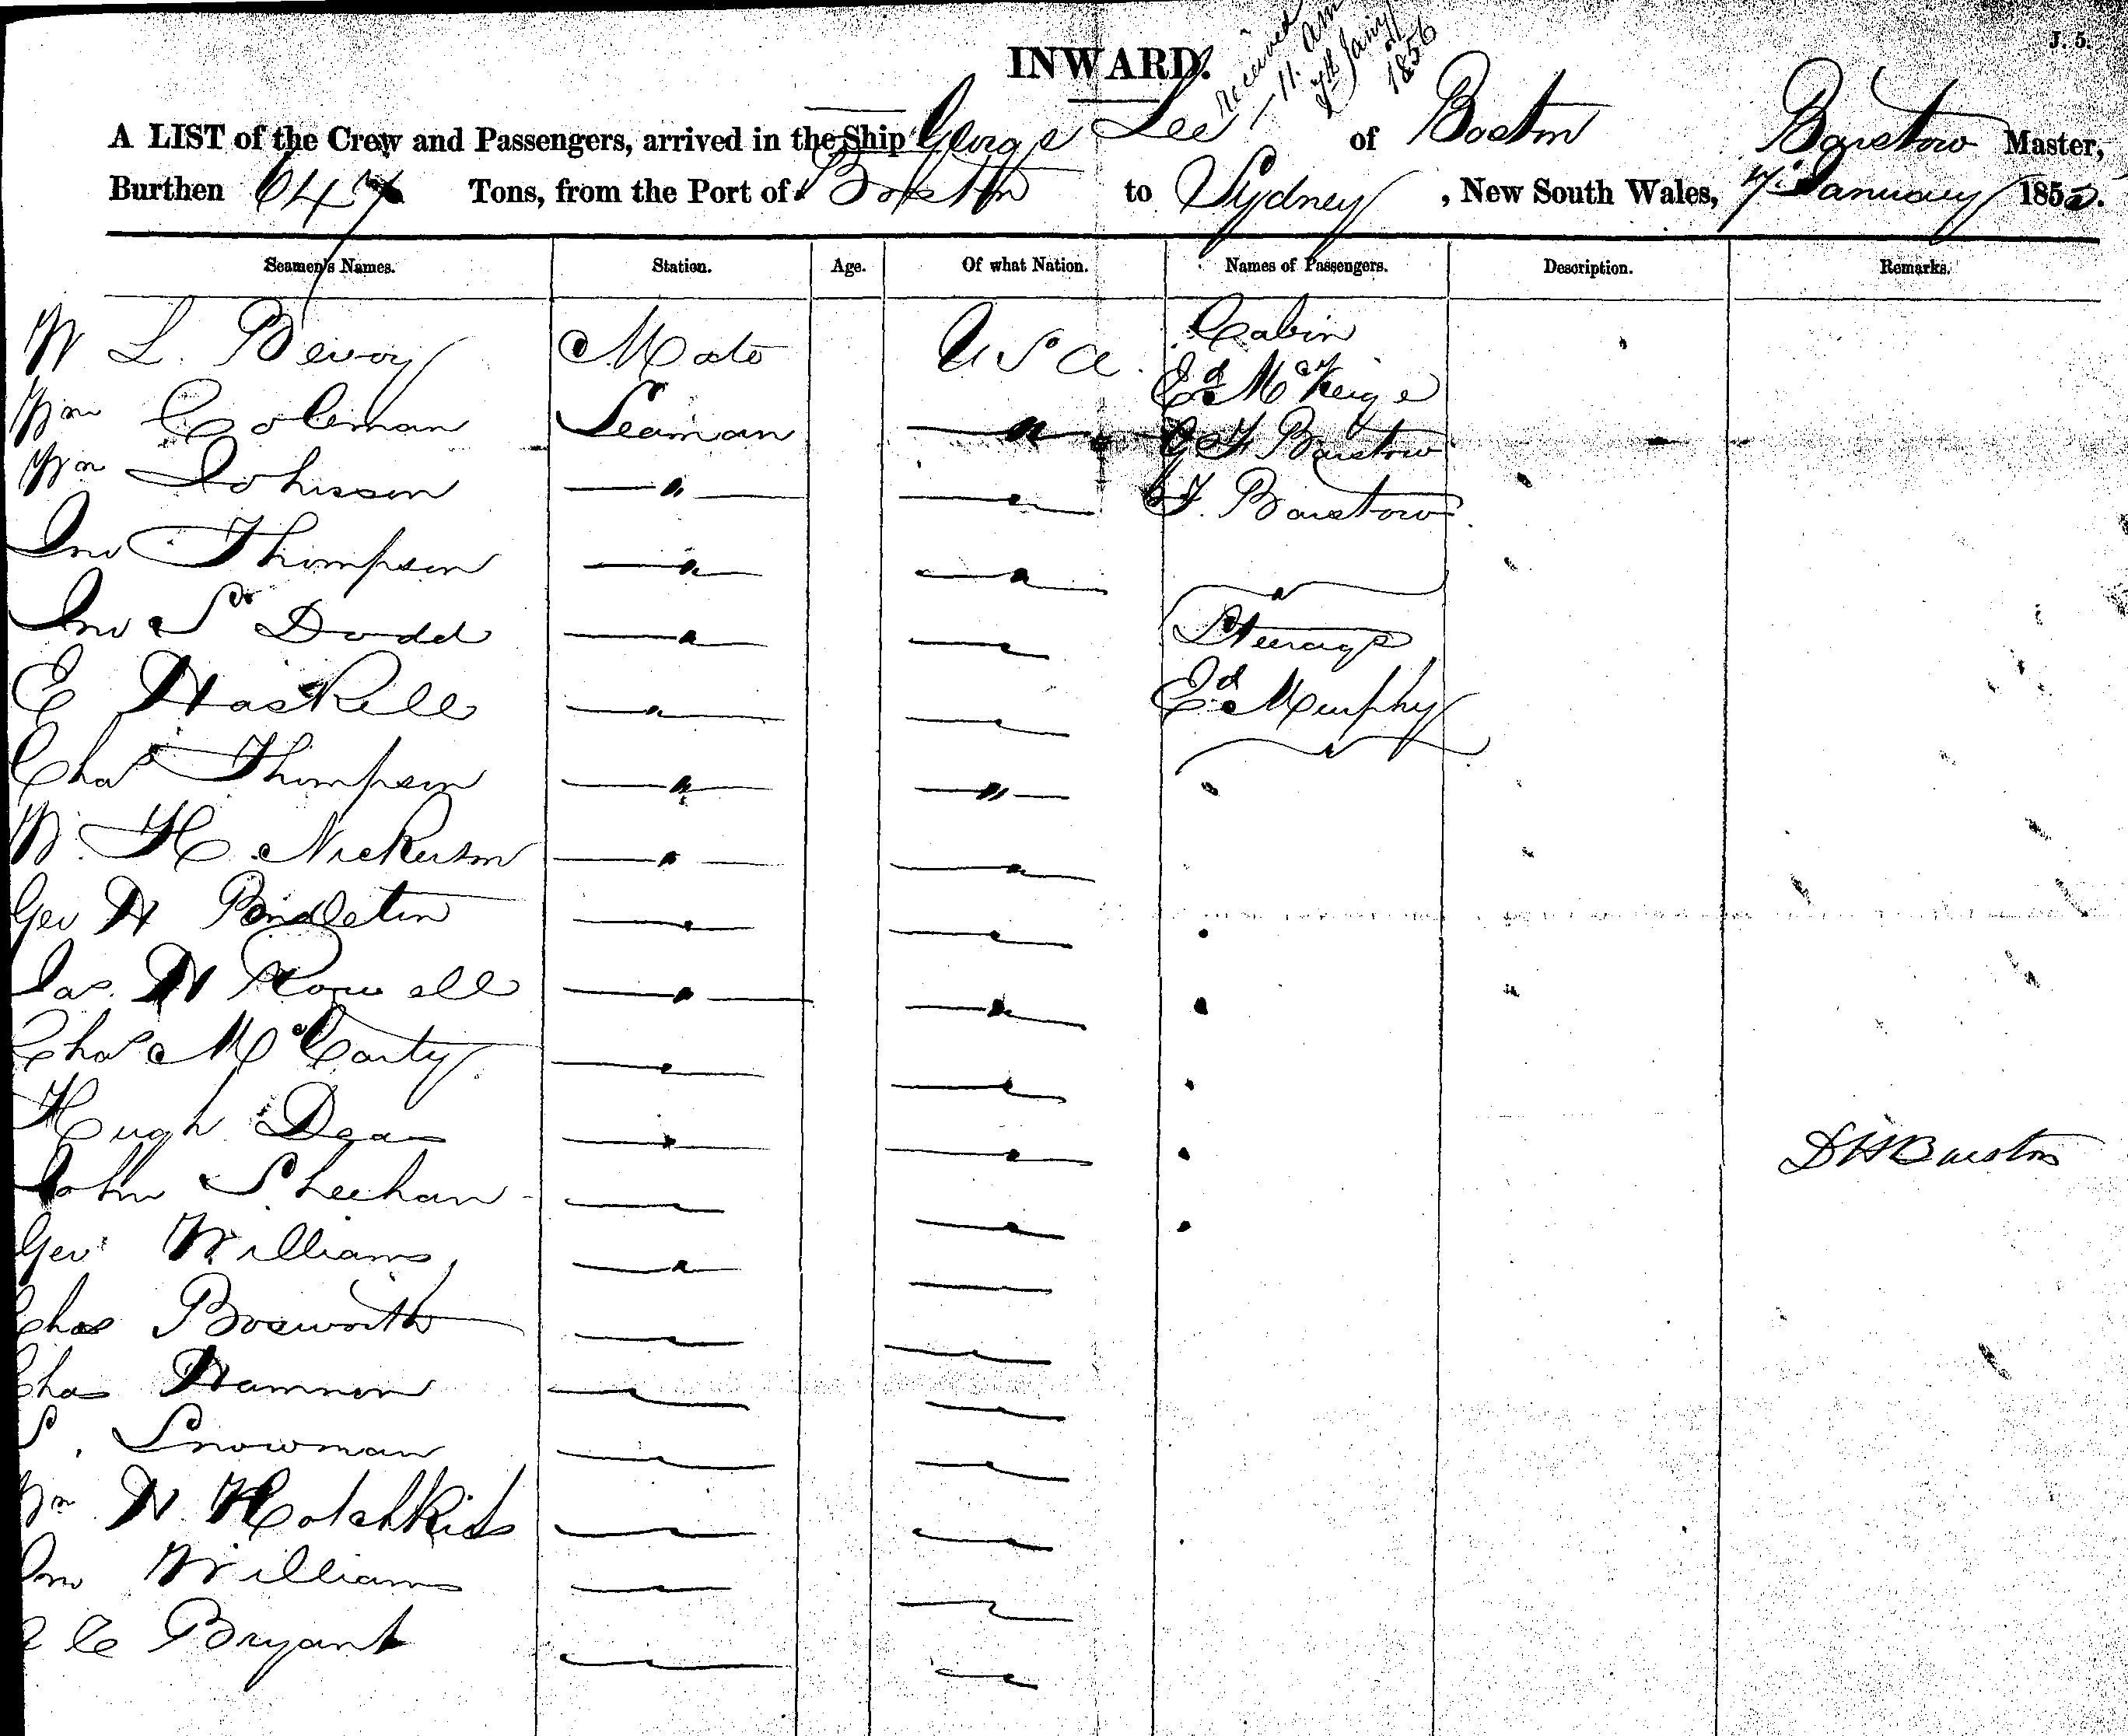 J. 5.
INWARD.
Received
11. am
7th Jany
1856
A LIST of the Crew and Passengers, arrived in the Ship George Lee of Boston Barstow Master,
Burthen 64 Tons, from the Port of Boston to Sydney, New South Wales, 7 January 185
Seamen's Names. Station. Age. Of what Nation. Names of Passengers. Description. Remarks.
W L. Bevoy Mate U S A. Cabin
Ed McKeige
Wm Coleman Seaman — " — G F Barstow
Wm Johnson — " — — " — F. Barstow
Jno Thompson — " — — " —
Jno S Dodd — " — — " — Steerage
E Haskell — " — — " — Ed Murphy
Chas Thompson — " — — " —
W. H. Nickerson — " — — " —
Geo H Pendleton — " — — " —
Jas. H Rowell — " — — " —
Chas McCarty — " — — " —
Hugh Dea — " — — " — D H Barstow
John Sheehan — " — — " —
Geo Williams — " — — " —
Chas Bosworth — " — — " —
Chas Hammon — " — — " —
S. Snowman — " — — " —
Wm H Hotchkiss — " — — " —
Jno Williams — " — — " —
C Bryant — " — — " —